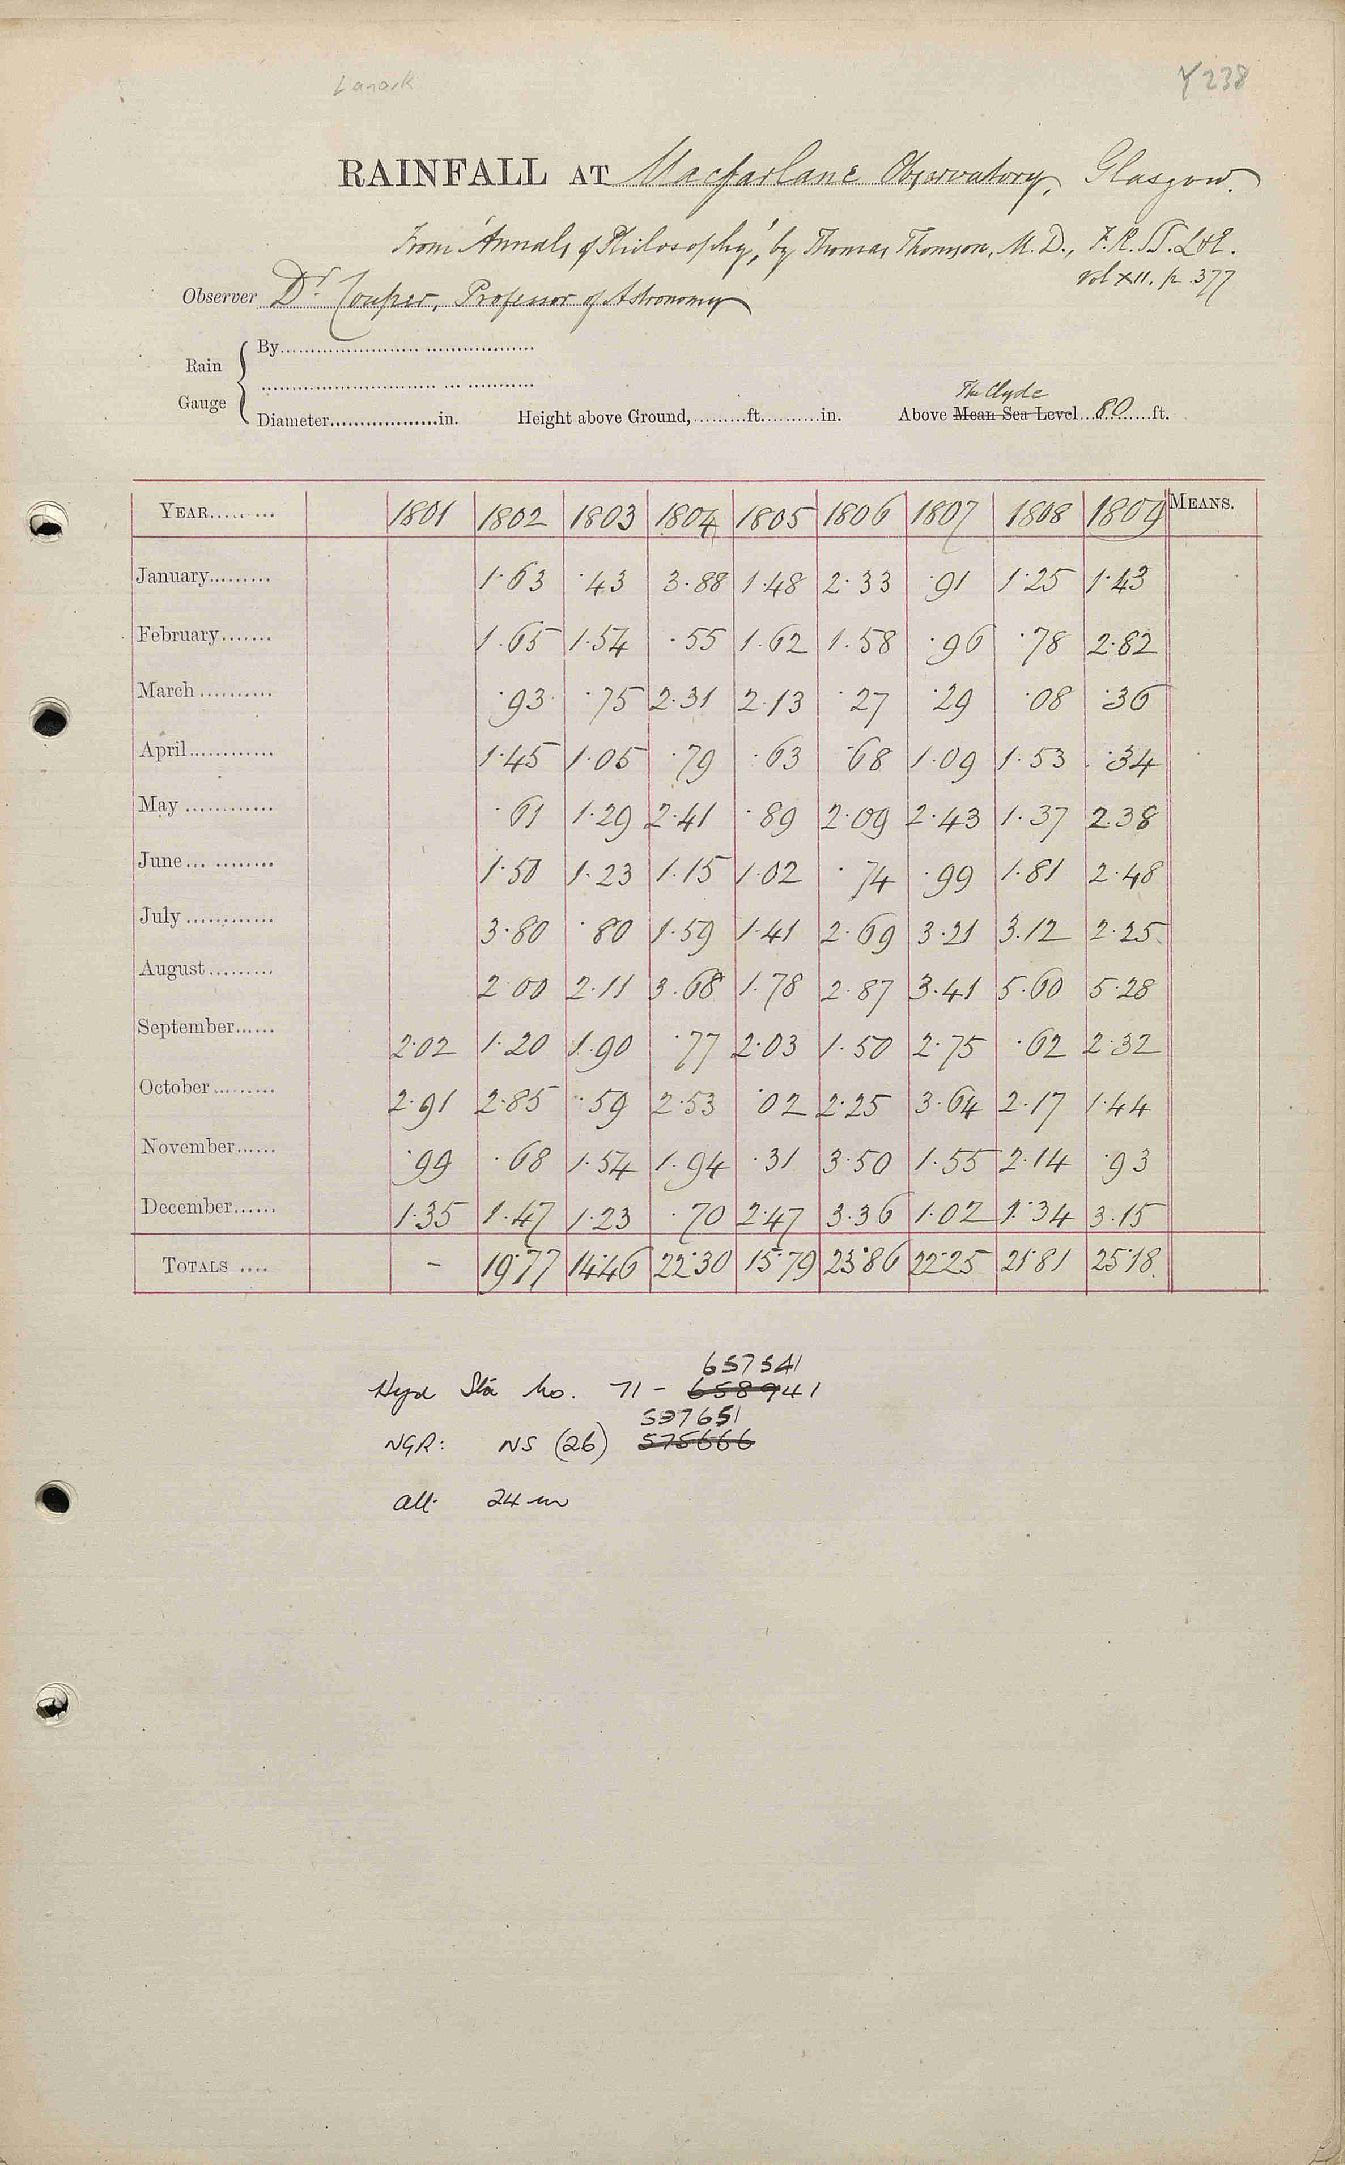 Lanark
Y 238
RAINFALL AT Macfarlane Observatory, Glasgow.
From 'Annals of Philosophy,' by Thomas Thomson, M.D., F.R.SS. L&E.
vol XII. p. 377
Observer Dr. Couper, Professor of Astronomy
Rain Gauge
By
Diameter in. Height above Ground, ft. in. Above Mean Sea Level 80 ft.
The Clyde
YEAR 1801 1802 1803 1804 1805 1806 1807 1808 1809 MEANS.
January 1.63 .43 3.88 1.48 2.33 .91 1.25 1.43
February 1.65 1.54 .55 1.62 1.58 .96 .78 2.82
March .93 .75 2.31 2.13 .27 .29 .08 .36
April 1.45 1.05 .79 .63 .68 1.09 1.53 .34
May .61 1.29 2.41 .89 2.09 2.43 1.37 2 38
June 1.50 1.23 1.15 1.02 .74 .99 1.81 2.48
July 3.80 .80 1.59 1.41 2.69 3.21 3.12 2.25
August 2.00 2.11 3.68 1.78 2.87 3.41 5.60 5.28
September 2.02 1.20 1.90 .77 2.03 1.50 2.75 .62 2.32
October 2.91 2.85 .59 2.53 .02 2.25 3.64 2.17 1.44
November .99 .68 1.54 1.94 .31 3.50 1.55 2.14 .93
December 1.35 1.47 1.23 .70 2.47 3.36 1.02 1.34 3.15
TOTALS - 19.77 14.46 22.30 15.79 23.86 22.25 21.81 25.18
657541
Hyd Sta No. 71 - 658941
597651
NGR: NS (26) 575666
alt. 24 m